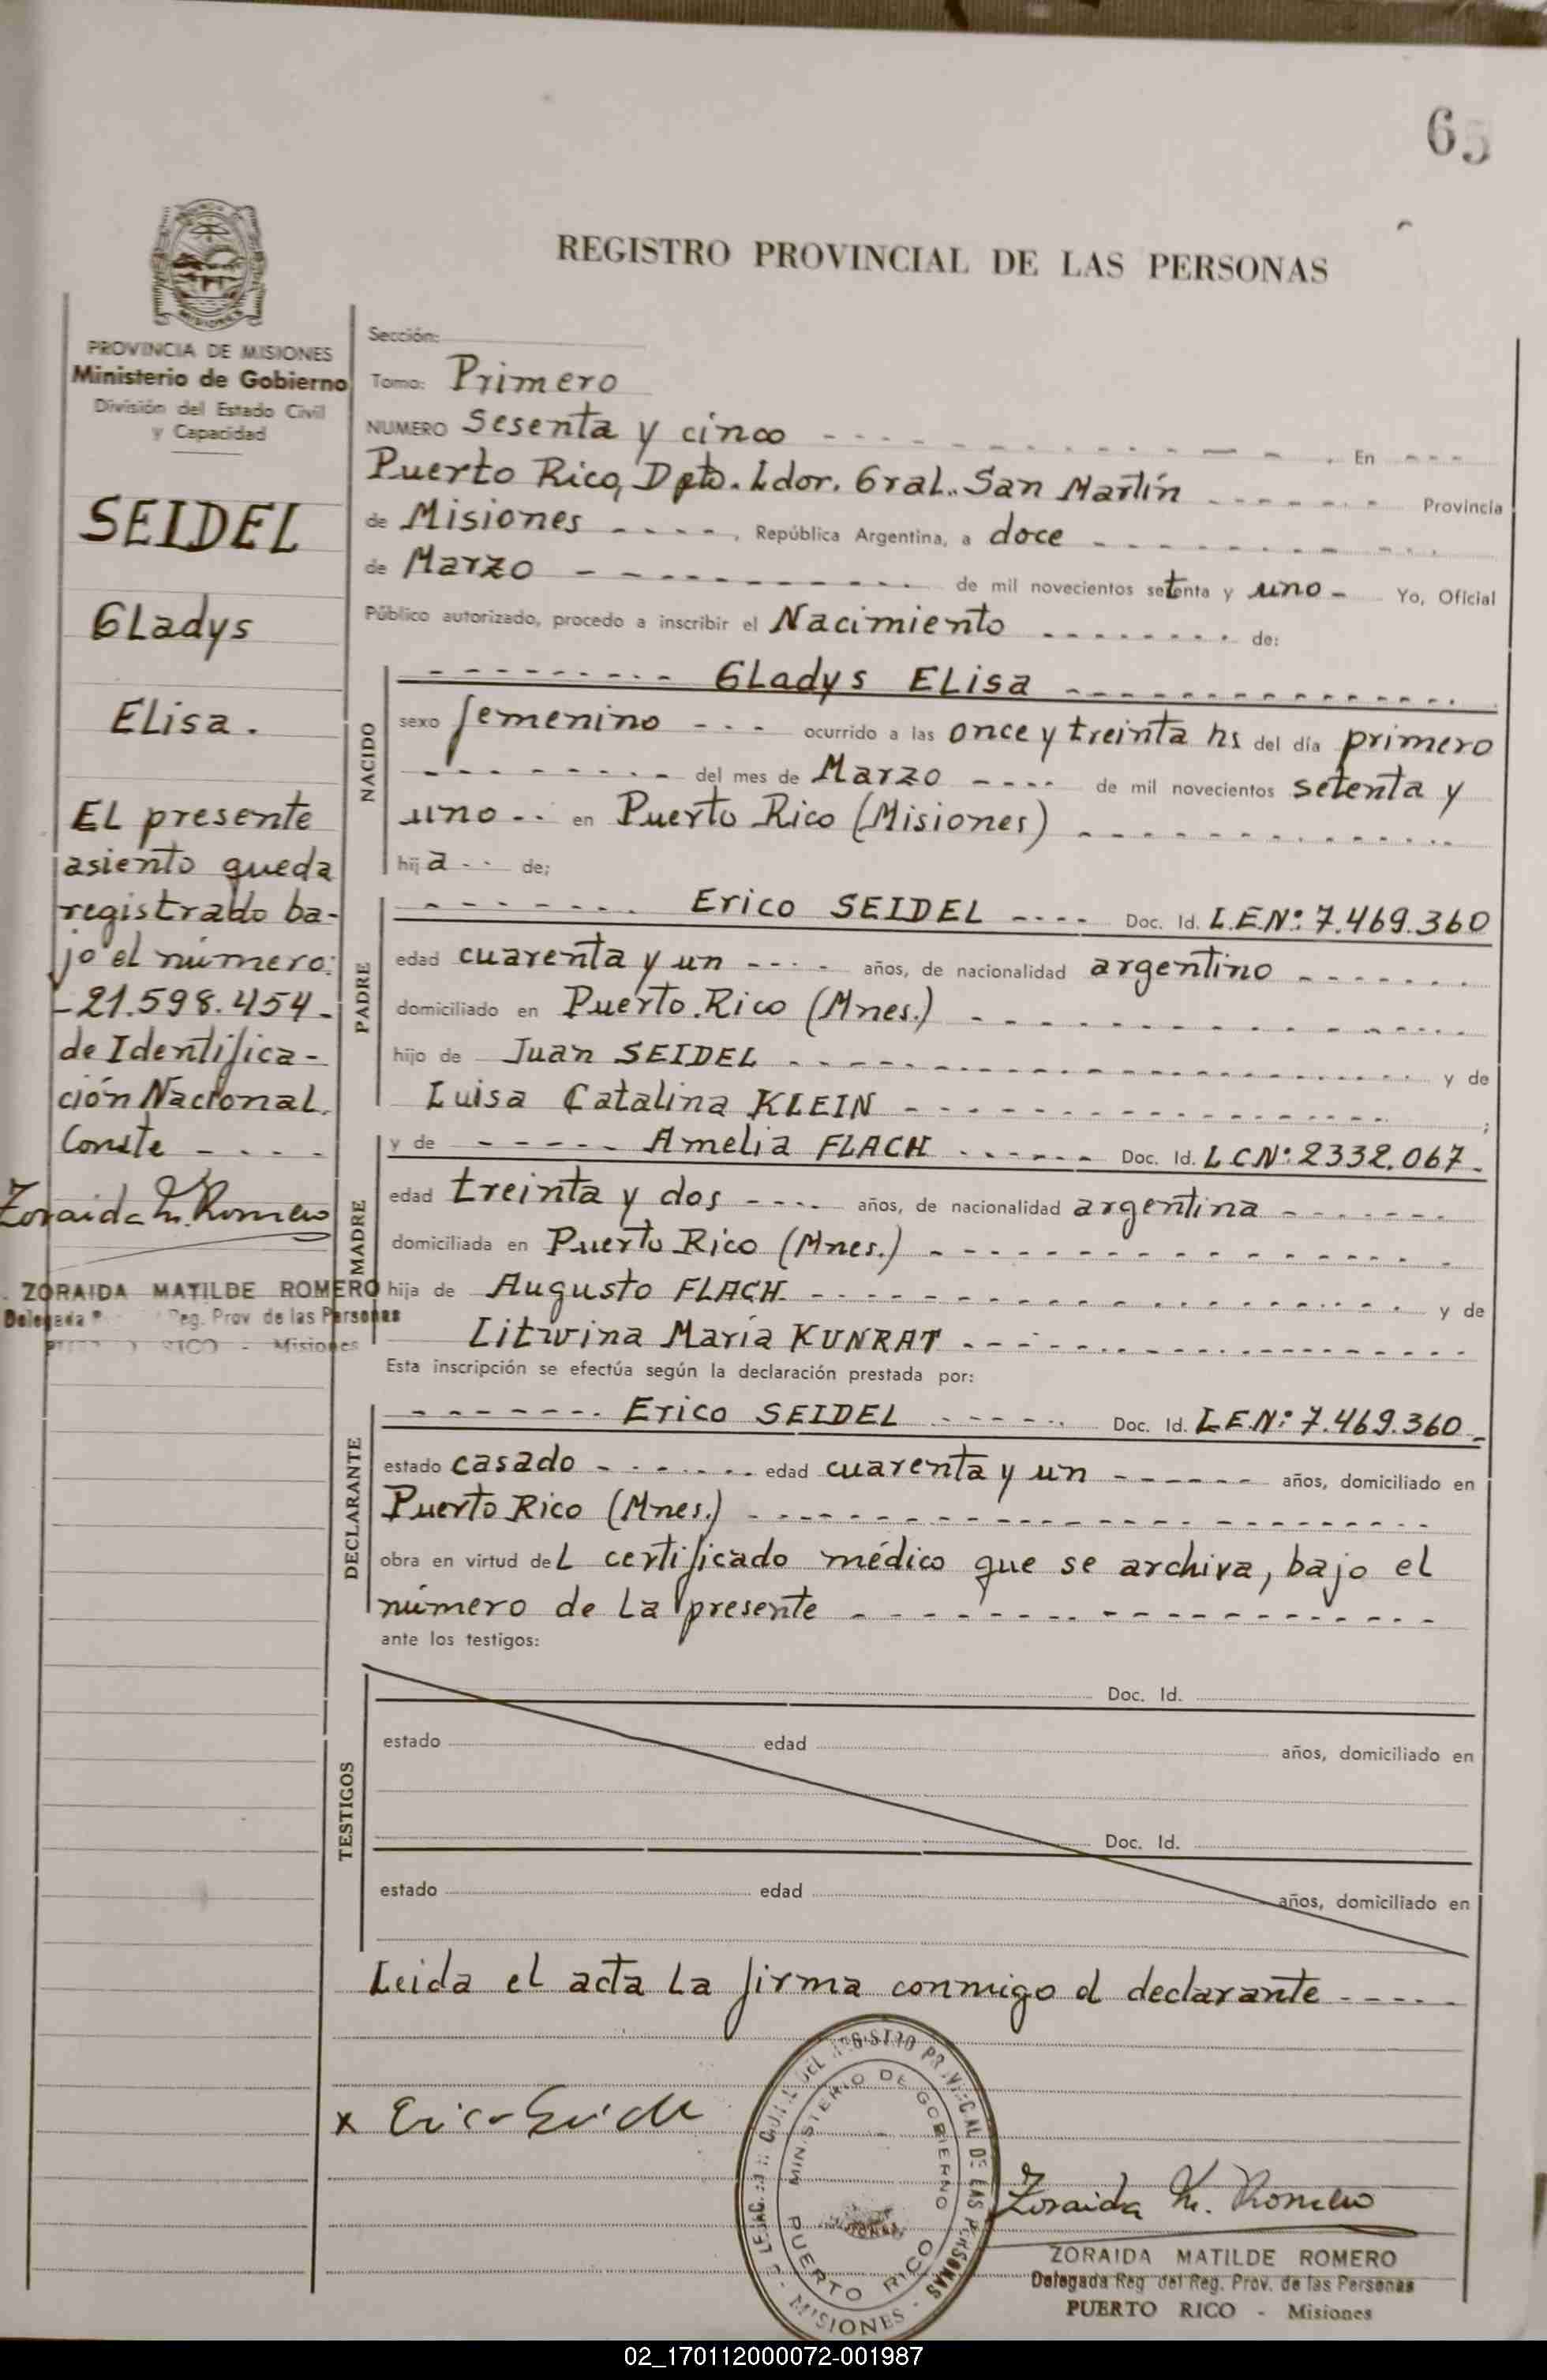 65
REGISTRO PROVINCIAL DE LAS PERSONAS
MISIONES
PROVINCIA DE MISIONES
Ministerio de Gobierno
División del Estado Civil
y Capacidad
SEIDEL
Gladys
Elisa.
El presente
asiento queda
registrado ba-
jo el número:
-21.598.454-
de Identifica-
ción Nacional.
Conste - - - -
Zoraida M. Romero
ZORAIDA MATILDE ROMERO
Delegada Reg. Prov de las Personas
RICO - Misiones
Sección:
Tomo: Primero
NUMERO Sesenta y cinco - - - . En - - -
Puerto Rico, Dpto. Ldor. Gral. San Martín - - - Provincia
de Misiones - - - -, República Argentina, a doce - - -
de Marzo - - - de mil novecientos setenta y uno - Yo, Oficial
Público autorizado, procedo a inscribir el Nacimiento - - - de:
NACIDO
- - - Gladys Elisa - - -
sexo femenino - - - ocurrido a las once y treinta hs del día primero
- - - del mes de Marzo - - - - de mil novecientos setenta y
uno - - en Puerto Rico (Misiones) - - -
hija - - de;
PADRE
- - - Erico SEIDEL - - - - Doc. Id. L.E.Nº: 7.469.360
edad cuarenta y un - - - - años, de nacionalidad argentino - - -
domiciliado en Puerto Rico (Mnes.) - - -
hijo de Juan SEIDEL - - - y de
Luisa Catalina KLEIN - - - ;
MADRE
y de - - - Amelia FLACH - - - Doc. Id. L C Nº: 2332.067.
edad treinta y dos - - - - años, de nacionalidad argentina - - -
domiciliada en Puerto Rico (Mnes.) - - -
hija de Augusto FLACH - - - y de
Litwina María KUNRAT - - -
Esta inscripción se efectúa según la declaración prestada por:
DECLARANTE
- - - Erico SEIDEL - - - Doc. Id. L.E.Nº: 7.469.360 -
estado casado - - - edad cuarenta y un - - - años, domiciliado en
Puerto Rico (Mnes.) - - -
obra en virtud del certificado médico que se archiva, bajo el
número de la presente - - -
ante los testigos:
TESTIGOS
Doc. Id.
estado edad años, domiciliado en
Doc. Id.
estado edad años, domiciliado en
Leida el acta la firma conmigo el declarante - - -
x Erico Seidel
REGISTRO PROVINCIAL DE LAS PERSONAS
MINISTERIO DE GOBIERNO
PUERTO RICO
- MISIONES -
Zoraida M. Romero
ZORAIDA MATILDE ROMERO
Delegada Reg. del Reg. Prov. de las Personas
PUERTO RICO - Misiones
02_170112000072-001987